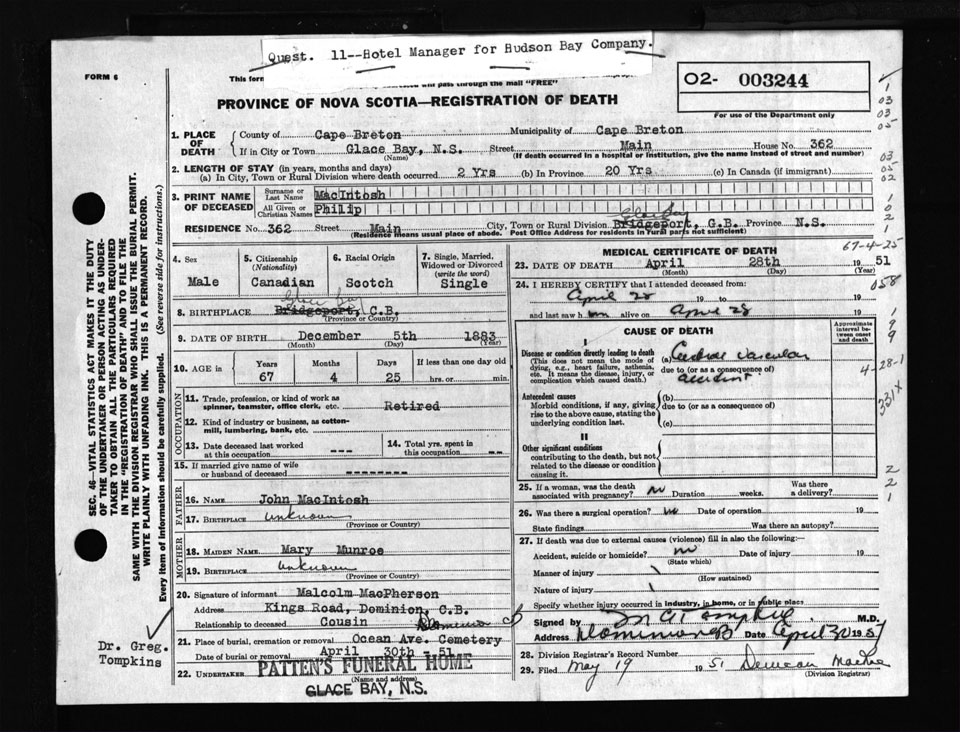 Quest. 11--Hotel Manager for Hudson Bay Company.
FORM 6
This form
will pass through the mail "FREE"
O2- 003244
For use of the Department only
PROVINCE OF NOVA SCOTIA—REGISTRATION OF DEATH
1. PLACE OF DEATH
County of Cape Breton Municipality of Cape Breton
If in City or Town Glace Bay, N.S. Street Main House No. 362
(Name) (If death occurred in a hospital or institution, give the name instead of street and number)
2. LENGTH OF STAY (in years, months and days)
(a) In City, Town or Rural Division where death occurred 2 Yrs (b) In Province 20 Yrs (c) In Canada (if immigrant)
3. PRINT NAME OF DECEASED
Surname or Last Name MacIntosh
All Given or Christian Names Philip
Glace Bay
RESIDENCE No. 362 Street Main City, Town or Rural Division Bridgeport, G.B. Province N.S.
(Residence means usual place of abode. Post Office Address for residents in Rural parts not sufficient)
4. Sex
Male
5. Citizenship
(Nationality)
Canadian
6. Racial Origin
Scotch
7. Single, Married, Widowed or Divorced
(write the word)
Single
Glace Bay
8. BIRTHPLACE Bridgeport, C.B.
(Province or Country)
9. DATE OF BIRTH December 5th 1883
(Month) (Day) (Year)
10. AGE in Years Months Days If less than one day old
67 4 25 hrs. or min.
OCCUPATION
11. Trade, profession, or kind of work as spinner, teamster, office clerk, etc. Retired
12. Kind of industry or business, as cotton-mill, lumbering, bank, etc.
13. Date deceased last worked at this occupation ---
14. Total yrs. spent in this occupation --
15. If married give name of wife or husband of deceased --------
FATHER
16. NAME John MacIntosh
17. BIRTHPLACE unknown
(Province or Country)
MOTHER
18. MAIDEN NAME Mary Munroe
19. BIRTHPLACE unknown
(Province or Country)
20. Signature of informant Malcolm MacPherson
Address Kings Road, Dominion, C.B.
Relationship to deceased Cousin Dominion
21. Place of burial, cremation or removal Ocean Ave. Cemetery
Date of burial or removal April 30th -51
22. UNDERTAKER PATTEN'S FUNERAL HOME
(Name and address)
GLACE BAY, N.S.
MEDICAL CERTIFICATE OF DEATH
67-4-25
23. DATE OF DEATH April 28th 1951
(Month) (Day) (Year)
24. I HEREBY CERTIFY that I attended deceased from:
April 28 19 to 19
and last saw him alive on April 28 19
058
CAUSE OF DEATH
Approximate interval between onset and death
I
Disease or condition directly leading to death (a) Cerebral vascular
(This does not mean the mode of dying, e.g., heart failure, asthenia, etc. It means the disease, injury, or complication which caused death.)
due to (or as a consequence of)
accident
4-28-1
331X
Antecedent causes
Morbid conditions, if any, giving rise to the above cause, stating the underlying condition last.
(b)
due to (or as a consequence of)
(c)
II
Other significant conditions
contributing to the death, but not related to the disease or condition causing it.
25. If a woman, was the death associated with pregnancy? no Duration weeks. Was there a delivery?
26. Was there a surgical operation? no Date of operation 19
State findings Was there an autopsy?
27. If death was due to external causes (violence) fill in also the following:—
Accident, suicide or homicide? no Date of injury 19
(State which)
Manner of injury
(How sustained)
Nature of injury
Specify whether injury occurred in industry, in home, or in public place
Signed by Tompkins, M.D.
Address Dominion CB Date April 30 1951
28. Division Registrar's Record Number
29. Filed May 19 1951 Duncan
(Division Registrar)
SEC. 46—VITAL STATISTICS ACT MAKES IT THE DUTY
OF THE UNDERTAKER OR PERSON ACTING AS UNDER-
TAKER TO OBTAIN ALL THE PARTICULARS REQUIRED
IN THE "REGISTRATION OF DEATH" AND TO FILE THE
SAME WITH THE DIVISION REGISTRAR WHO SHALL ISSUE THE BURIAL PERMIT.
WRITE PLAINLY WITH UNFADING INK. THIS IS A PERMANENT RECORD.
Every item of information should be carefully supplied. (See reverse side for instructions.)
Dr. Greg.
Tompkins
1
03
03
05
03
05
02
1
0
2
1
1
9
9
2
2
1